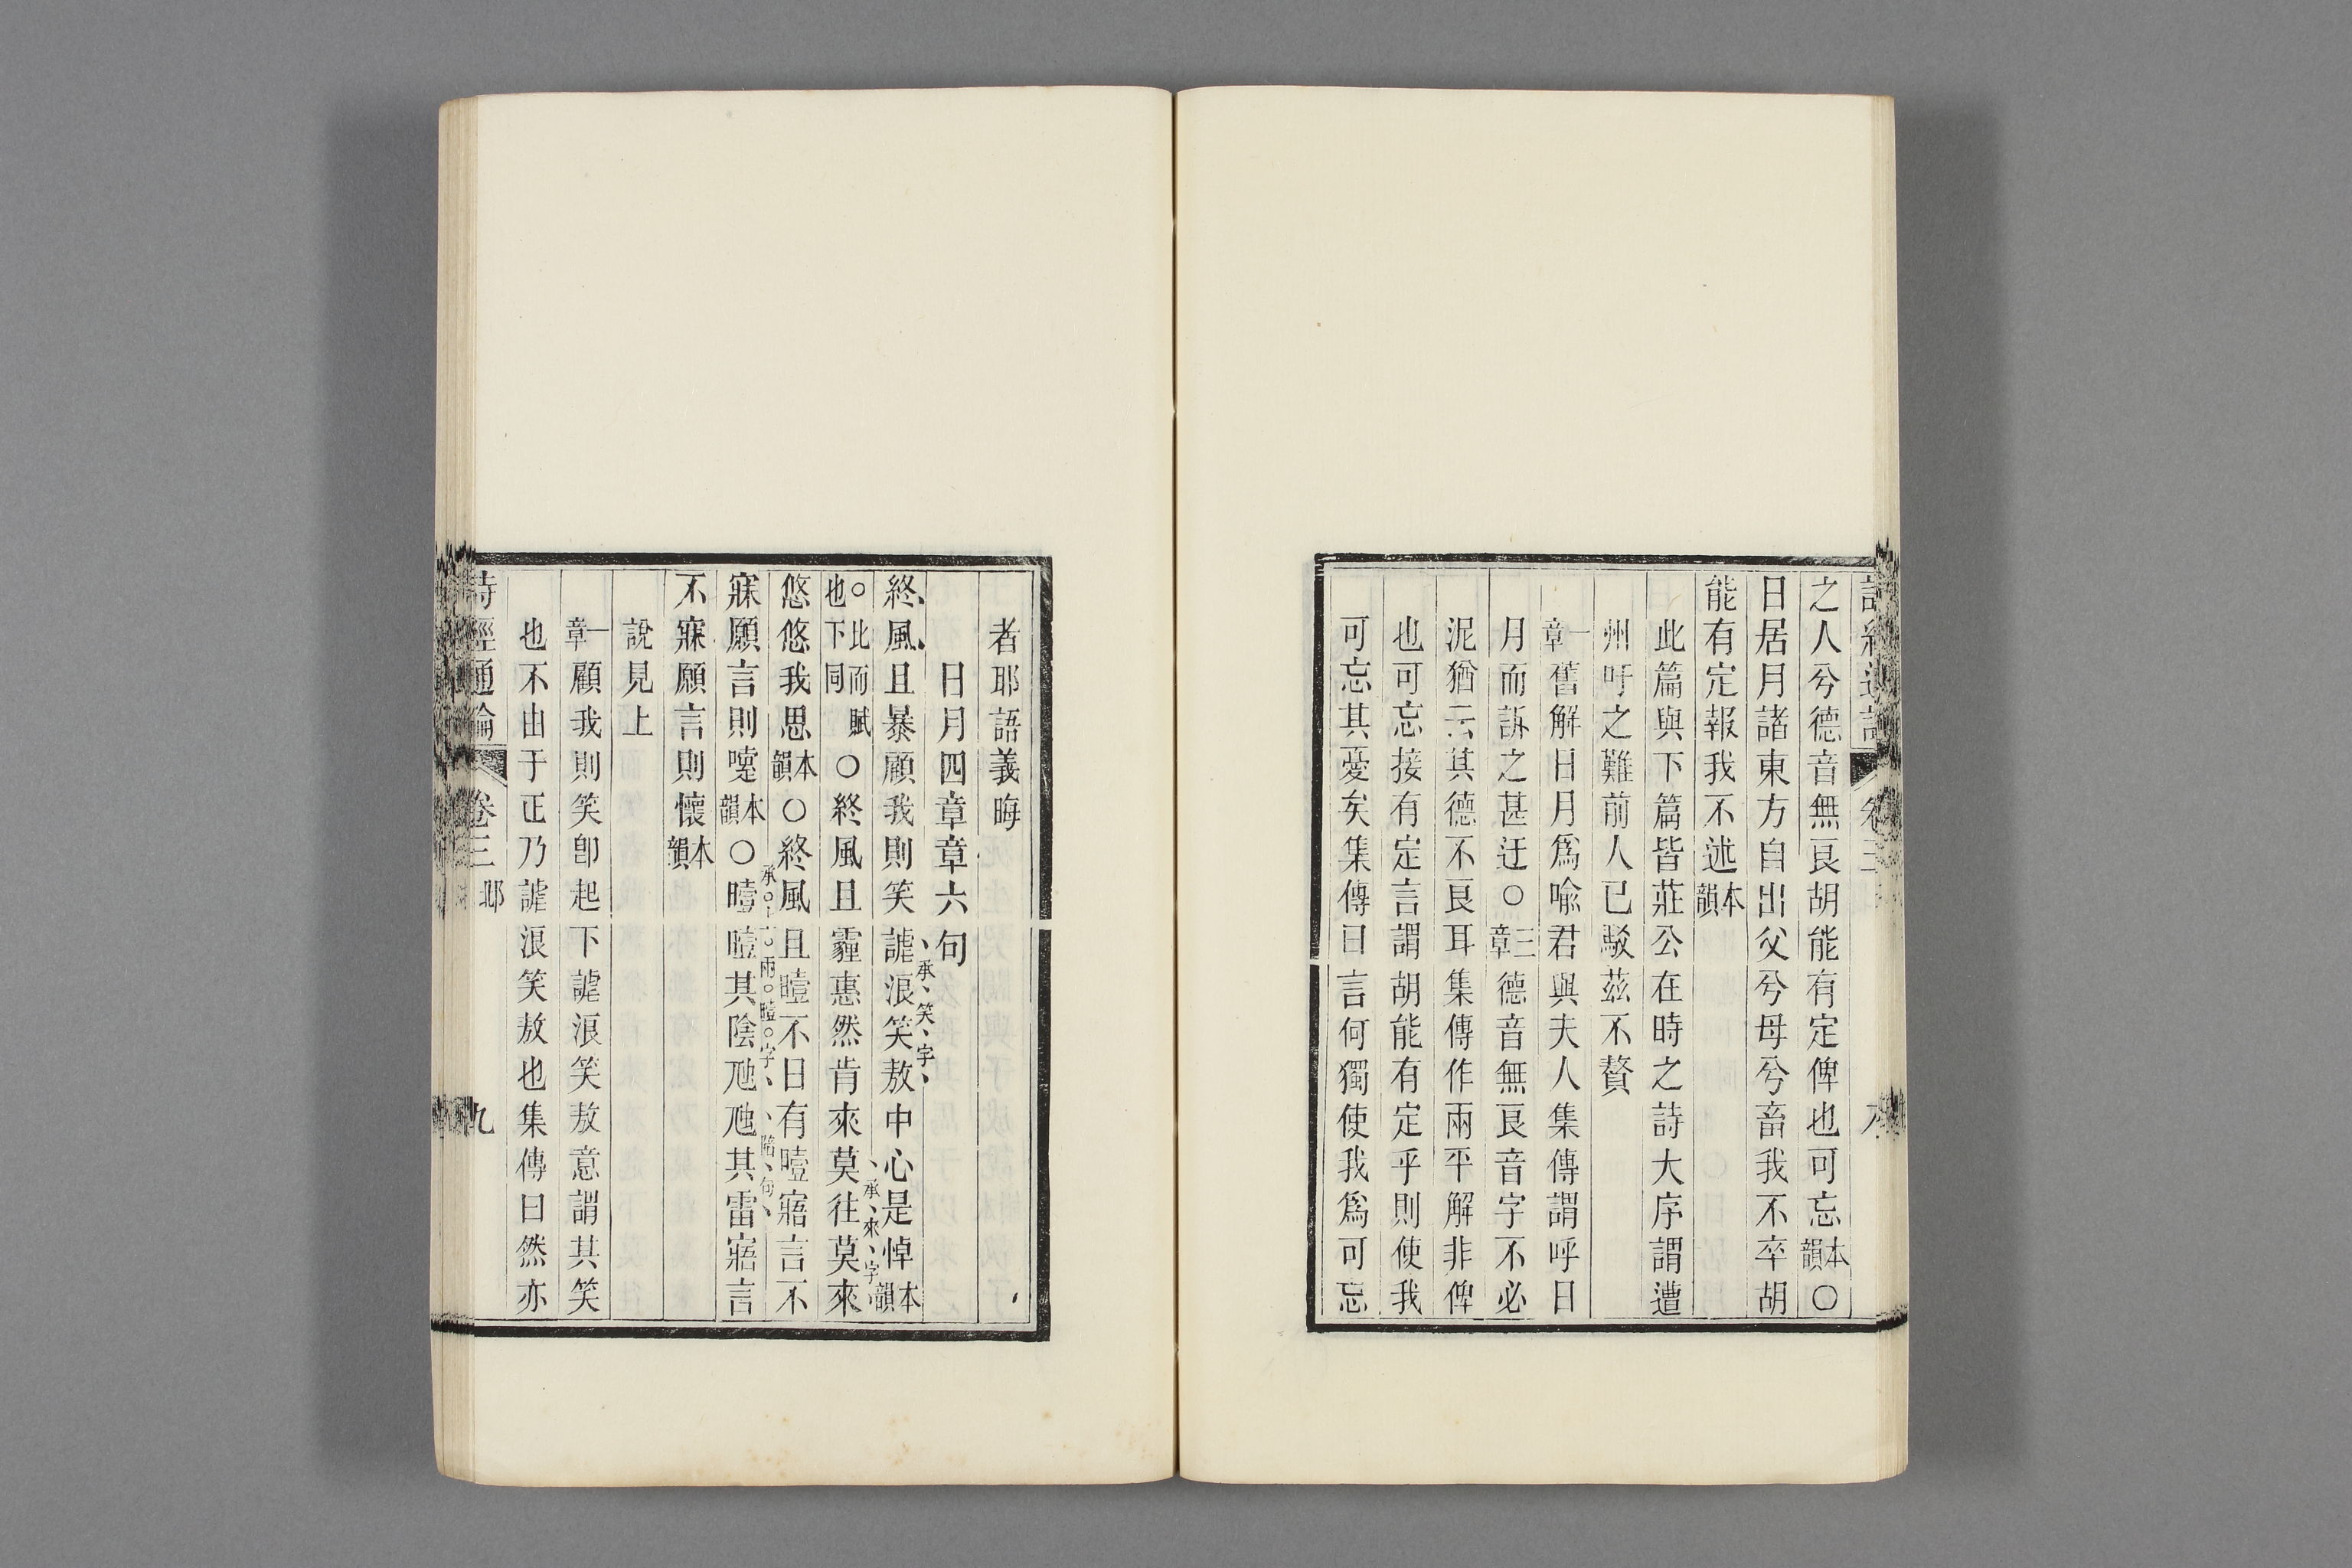 之人兮德音無良胡能有定俾也可忘本韻○
日居月諸東方自出父兮母兮畜我不卒胡
能有定報我不述本韻
此篇與下篇皆莊公在時之詩大序謂遭
州吁之難前人已駁茲不贅
一章舊解日月爲喻君與夫人集傳謂呼日
月而訴之甚迂○三章德音無良音字不必
泥猶云其德不良耳集傳作兩平解非俾
也可忘接有定言謂胡能有定乎則使我
可忘其憂矣集傳曰言何獨使我爲可忘
者耶語義晦
日月四章章六句
終風且暴顧我則笑謔浪笑敖承笑字中心是悼本韻
○比而賦也下同○終風且霾惠然肯來莫往莫來承來字
悠悠我思本韻○終風且曀不日有曀寤言不
寐願言則嚏本韻○曀曀其陰承上兩曀字虺虺其雷陪句寤言
不寐願言則懷本韻
說見上
一章顧我則笑卽起下謔浪笑敖意謂其笑
也不由于正乃謔浪笑敖也集傳曰然亦
詩經通論 卷三 邶 九